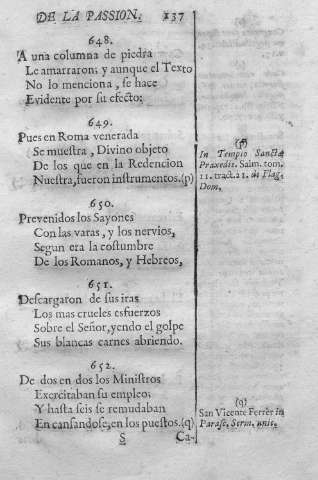 DE LA PASSION. 137
648.
A una columna de piedra
Le amarraron; y aunque el Texto
No lo menciona, se hace
Evidente por su efecto;
649.
Pues en Roma venerada
Se muestra, Divino objeto
De los que en la Redencion
Nuestra, fueron instrumentos.(p)
(p)
In Templo Sanctæ
Praxedis. Salm. tom.
11. tract. 21. de Flag.
Dom.
650.
Prevenidos los Sayones
Con las varas, y los nervios,
Segun era la costumbre
De los Romanos, y Hebreos,
651.
Descargaron de sus iras
Los mas crueles esfuerzos
Sobre el Señor, yendo el golpe
Sus blancas carnes abriendo.
652.
De dos en dos los Ministros
Exercitaban su empleo;
Y hasta seis se remudaban
En cansandose, en los puestos.(q)
(q)
San Vicente Ferrèr in
Parasc. Serm. unic.
S Ca-